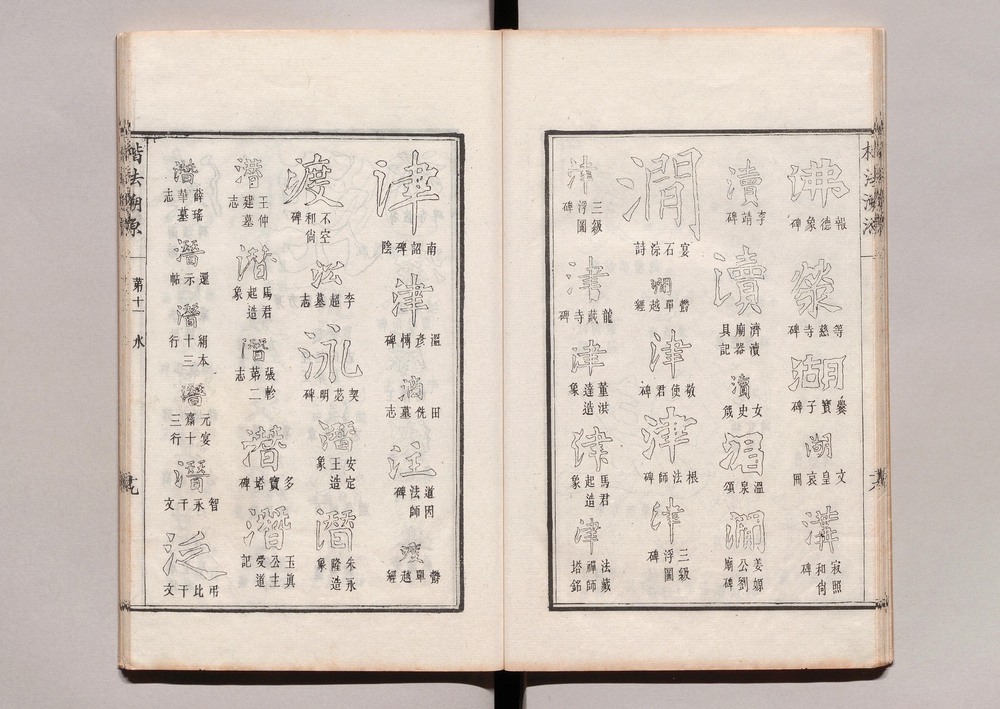 沸
報德象碑
滎
等慈寺碑
湖
爨寶子碑
湖
文皇哀冊
溝
寂照和尚碑
瀆
李靖碑
瀆
濟瀆廟器具記
瀆
女史箴
溫泉頌
澗
姜嫄公劉廟碑
澗
宴石淙詩
澗
鬱單越經
津
敬使君碑
津
根法師碑
津
三級浮圖碑
津
三級浮圖碑
津
龍藏寺碑
津
董洪達造象
津
馬君起造象
津
法藏禪師塔銘
津
南詔碑陰
津
溫彥博碑
田侁墓志
注
道因法師碑
渡
鬱單越經
渡
不空和尚碑
李超墓志
泳
契苾明碑
潛
安定王造象
潛
朱永隆造象
潛
王仲建墓志
潛
馬君起造象
潛
張軫第二志
潛
多寶塔碑
潛
玉眞公主受道記
潛
薛瑤華墓志
潛
還示帖
潛
絹本十三行
潛
元宴齋十三行
潛
智永千文
泛
弔比干文
楷法溯源
第十一 水
十九